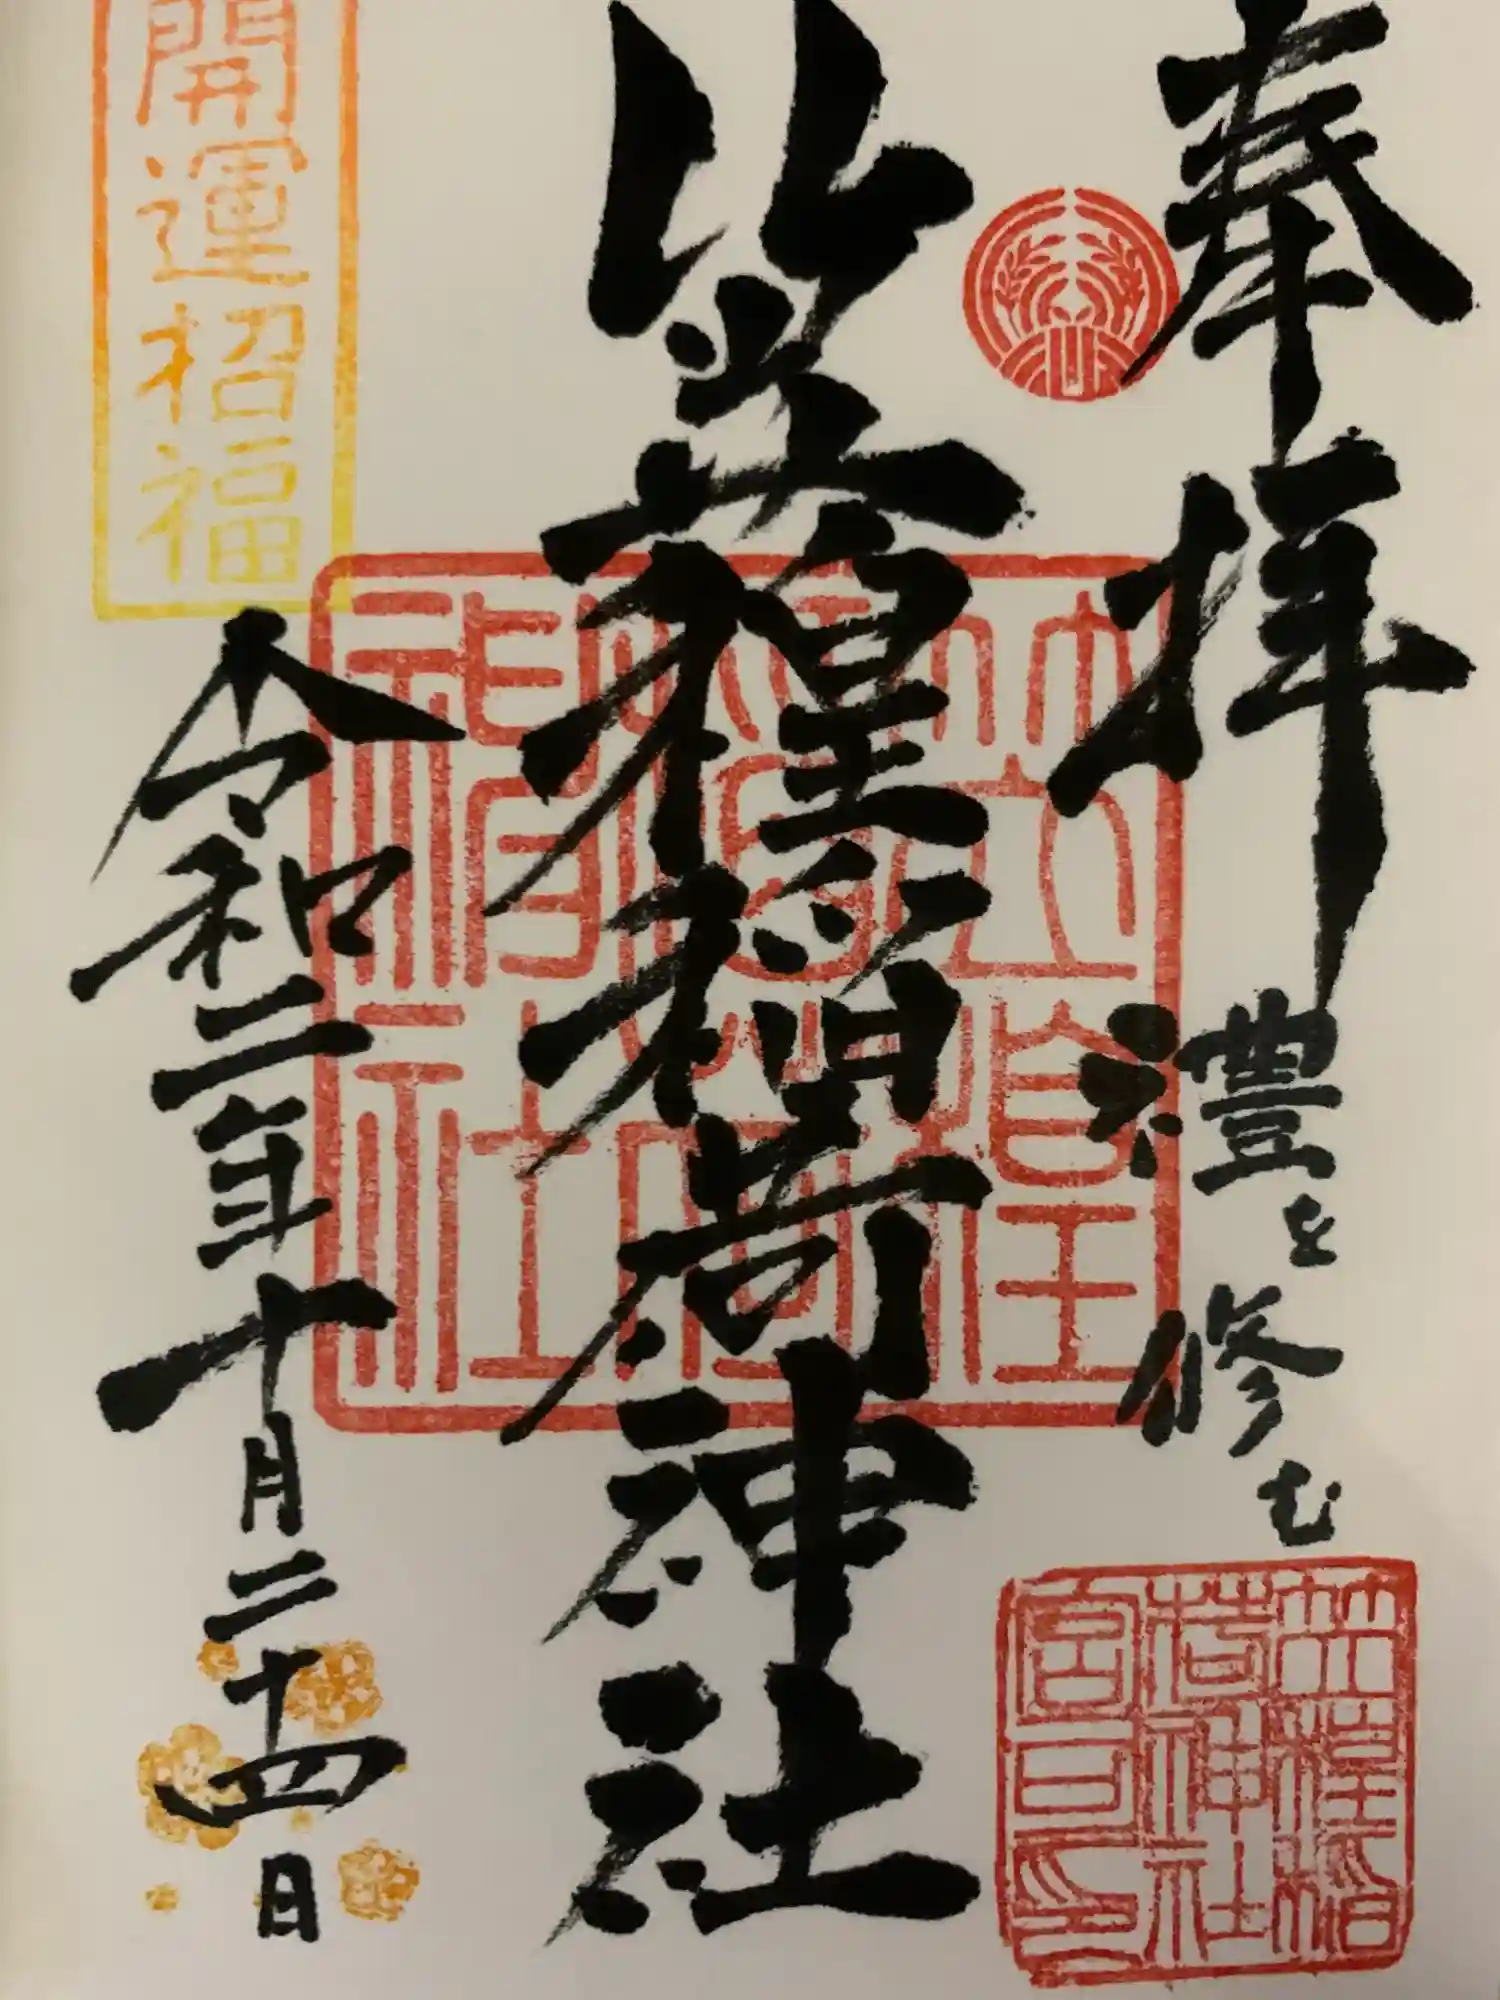 奉拝 禮を修む
笠䅣稲荷神社
令和二年十月二十四日
開運招福
笠䅣
稲荷
神社
笠䅣稲
荷神社
宮司印